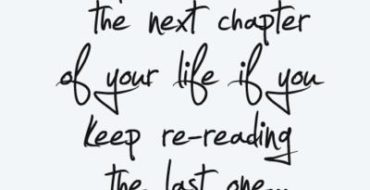 the next chapter
of your life if you
keep re-reading
the last one...